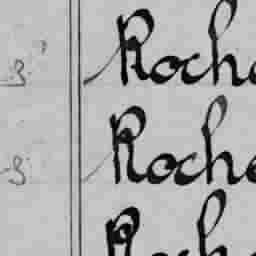 3. Roche
3. Roche
Roch